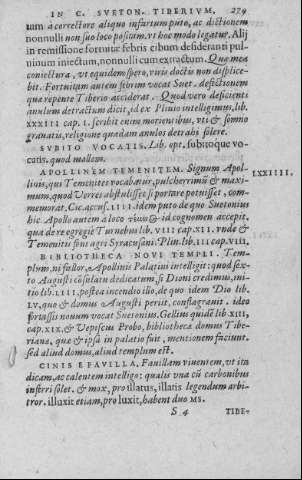 IN C. SVETON. TIBERIVM. 279
tum à correctore aliquo insartum puto, ac dictionem
nonnulli non suo loco positum. vt hoc modo legatur. Alij
in remissione fortuitæ febris cibum desideranti pul-
uinum iniectum, nonnulli cum extractum. Qua mea
coniectura, vt equidem spero, viris doctis non displice-
bit. Fortuitam autem febrim vocat Suet. defectionem
quæ repente Tiberio acciderat. Quod vero deficienti
annulum detractum dicit, id ex Plinio intelligimus, lib.
XXXIII cap. I. scribit enim morientibus, vti & somno
grauatis, religione quadam annulos detrahi solere.
SVBITO VOCATIS. Lib. opt. subitoque vo-
catis. quod mallem.
APOLLINEM TEMENITEM. Signum Apol-
linis, qui Temenites vocabatur, pulcherrimū & maxi- LXXIIII.
mum, quod Verres abstulisset, si portare potuisset, com-
memorat Cic. accus. IIII. idem puto de quo Suetonius
hic. Apollo autem à loco vnde & id cognomen accepit.
qua de re egregie Turnebus lib. VIII cap. XII. vnde &
Temenitū fons agri Syracusani. Plin. lib. III cap. VIII.
BIBLIOTHECA NOVI TEMPLI. Tem-
plum, ni fallor, Apollinis Palatini intelligit: quod sex-
to Augusti cōsulatu dedicatum, si Dioni credimus, ini-
tio lib. LIII, postea incendio illo, de quo idem Dio lib.
LV, quo & domus Augusti periit, conflagrauit. ideo
fortassis nouum vocat Suetonius. Gellius quidē lib. XIII,
cap. XIX. & Vopiscus Probo, bibliothecæ domus Tibe-
rianæ, quæ & ipsa in palatio fuit, mentionem faciunt.
sed aliud domus, aliud templum est.
CINIS E FAVILLA. Fauillam viuentem, vt ita
dicam, ac calentem intelligo: qualis vna cū carbonibus
inferri solet. & mox, pro illatus, illatis legendum arbi-
tror. illuxit etiam, pro luxit, habent duo MS.
S 4 TIBE-